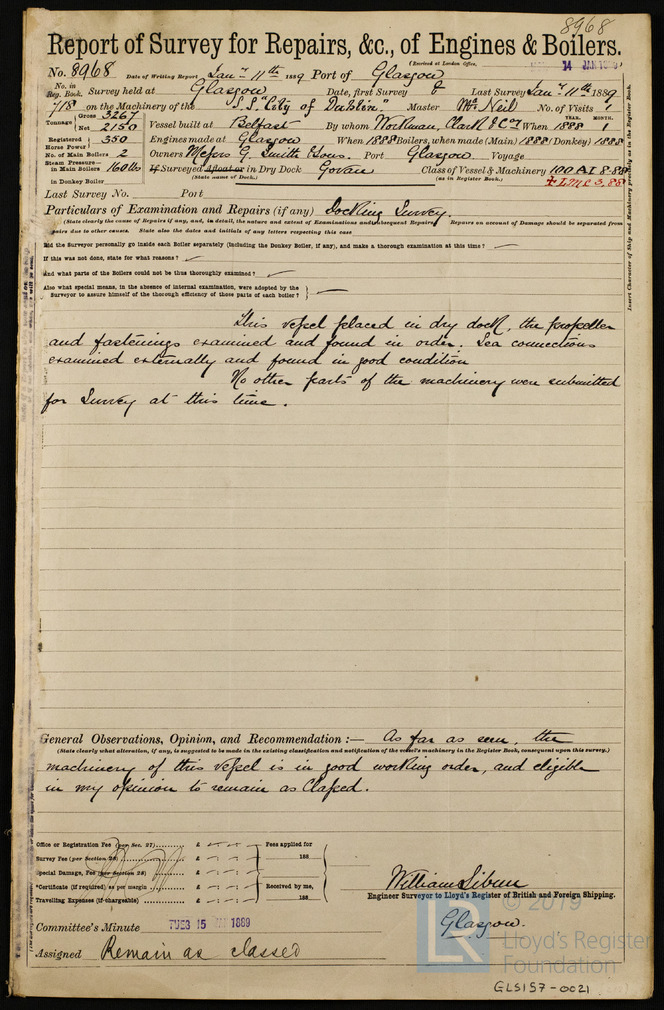 8968
Report of Survey for Repairs, &c., of Engines & Boilers.
(Received at London Office, 14 JAN 1889)
No. 8968 Date of Writing Report Jany 11th 1889 Port of Glasgow
No. in Reg. Book. Survey held at Glasgow Date, first Survey & Last Survey Jany 11th 1889
718 on the Machinery of the S.S. "City of Dublin". Master McNeil No. of Visits 1
Tonnage Gross 3267 Net 2150 Vessel built at Belfast By whom Workman, Clark & Coy When YEAR. 1888 MONTH. 1
Registered Horse Power 350 Engines made at Glasgow When 1888 Boilers, when made (Main) 1888 (Donkey) 1888
No. of Main Boilers 2 Owners Messrs G. Smith & Sons. Port Glasgow Voyage
Steam Pressure in Main Boilers 160 lbs If Surveyed afloat or in Dry Dock Govan Class of Vessel & Machinery 100 A1 8.88
(State name of Dock.) (as in Register Book.) LMC 3.88
in Donkey Boiler
Last Survey No. Port
Particulars of Examination and Repairs (if any) Docking Survey.
(State clearly the cause of Repairs if any, and, in detail, the nature and extent of Examinations and subsequent Repairs. Repairs on account of Damage should be separated from
repairs due to other causes. State also the dates and initials of any letters respecting this case
Did the Surveyor personally go inside each Boiler separately (including the Donkey Boiler, if any), and make a thorough examination at this time?
If this was not done, state for what reasons?
And what parts of the Boilers could not be thus thoroughly examined?
Also what special means, in the absence of internal examination, were adopted by the
Surveyor to assure himself of the thorough efficiency of those parts of each boiler?
This vessel placed in dry dock, the propeller
and fastenings examined and found in order. Sea connections
examined externally and found in good condition
No other parts of the machinery were submitted
for Survey at this time.
Insert Character of Ship and Machinery precisely as in the Register Book.
General Observations, Opinion, and Recommendation :— As far as seen, the
(State clearly what alteration, if any, is suggested to be made in the existing classification and notification of the vessel's machinery in the Register Book, consequent upon this survey.)
machinery of this vessel is in good working order, and eligible
in my opinion to remain as Classed.
Office or Registration Fee (per Sec. 27) £ Fees applied for
Survey Fee (per Section 28) £ 188
Special Damage, Fee (per Section 28) £
*Certificate (if required) as per margin £ Received by me,
Travelling Expenses (if chargeable) £ 188
William Sibun
Engineer Surveyor to Lloyd's Register of British and Foreign Shipping.
Glasgow.
Committee's Minute TUES 15 JAN 1889
Assigned Remain as classed
LR © 2019
Lloyd's Register
Foundation
GLS157-0021